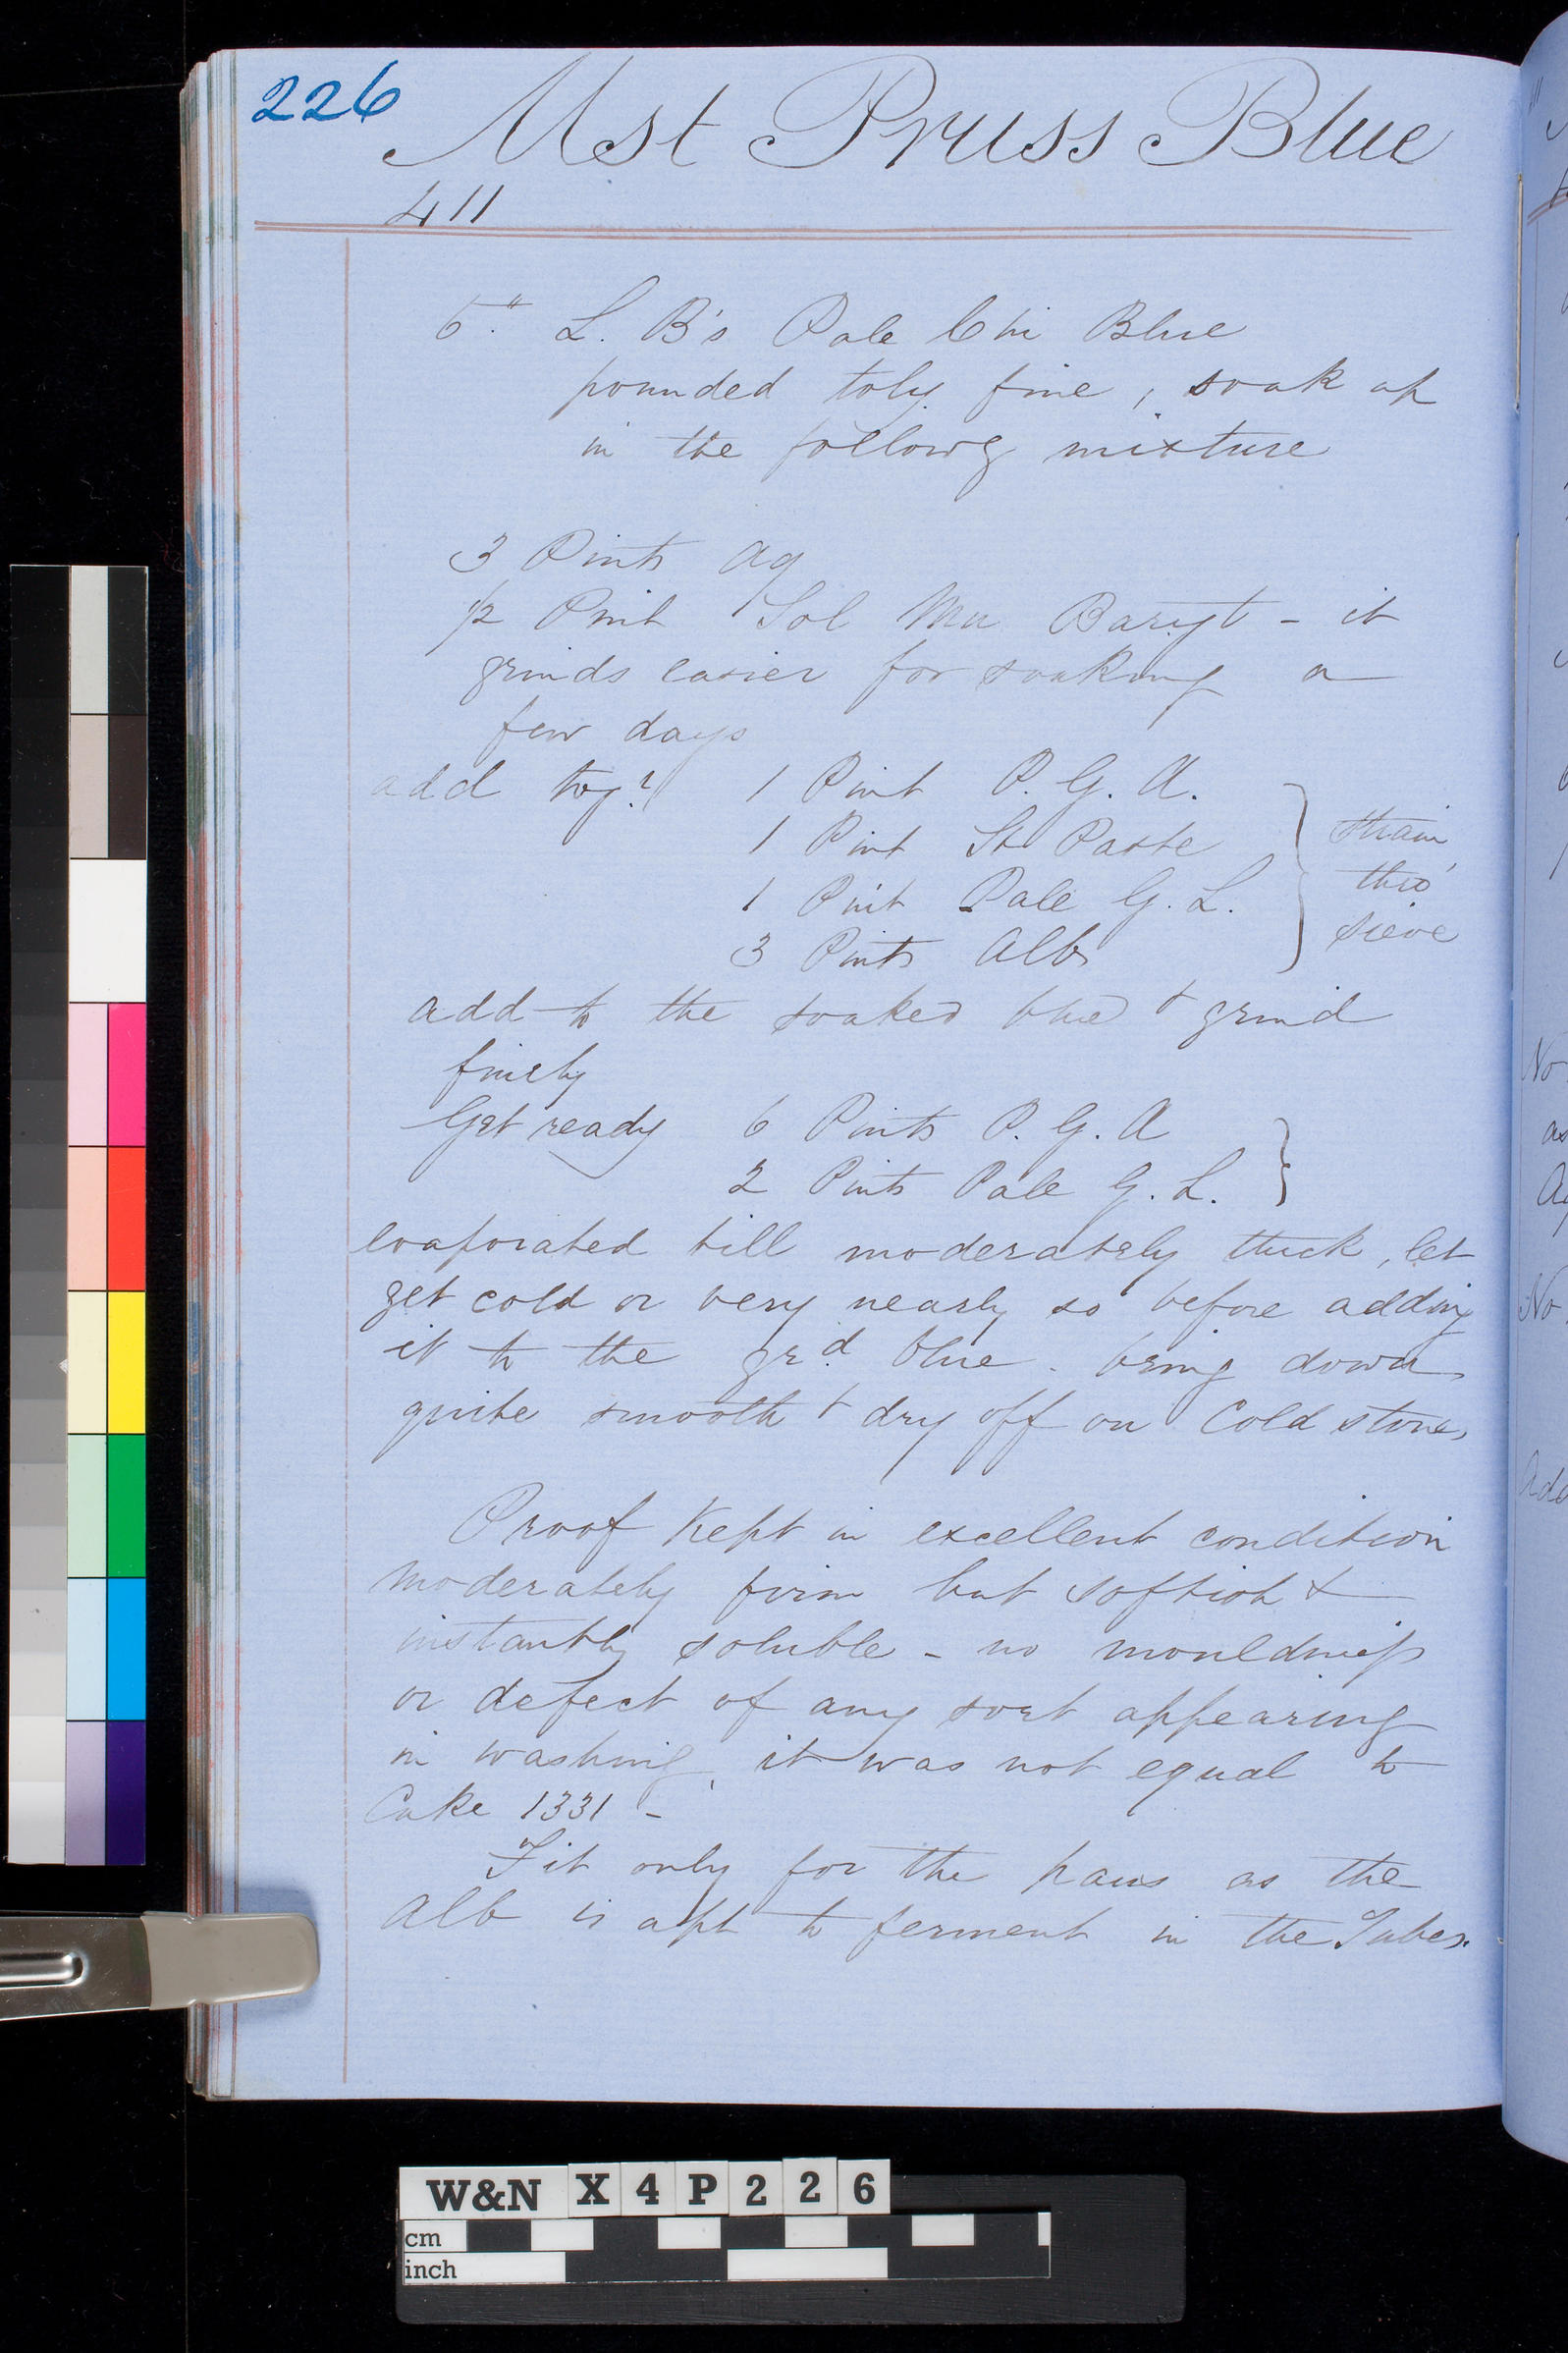 226
Mst Pruss Blue
411
6." L. B's Pale Chi Blue
pounded toly fine, soak up
in the followg mixture
3 Pints Aq
1/2 Pint Sol Mu Baryt - it
grinds easier for soaking a
few days
add togr 1 Pint P. G. A.
1 Pint St Paste
1 Pint Pale G. L.
3 Pints Alb
strain
thro'
sieve
add to the soaked blue & grind
finely
Get ready 6 Pints P. G. A
2 Pints Pale G. L.
evaporated till moderately thick, let
get cold or very nearly so before adding
it to the grd blue. bring down
quite smooth & dry off on Cold stone,
Proof Kept in excellent condition
moderately firm but softish &
instantly soluble - no mouldiness
or defect of any sort appearing
in washing, it was not equal to
Cake 1331 -
Fit only for the pans as the
Alb is apt to ferment in the Tubes.
No
as
No
Add
W&N X 4 P 2 2 6
cm
inch